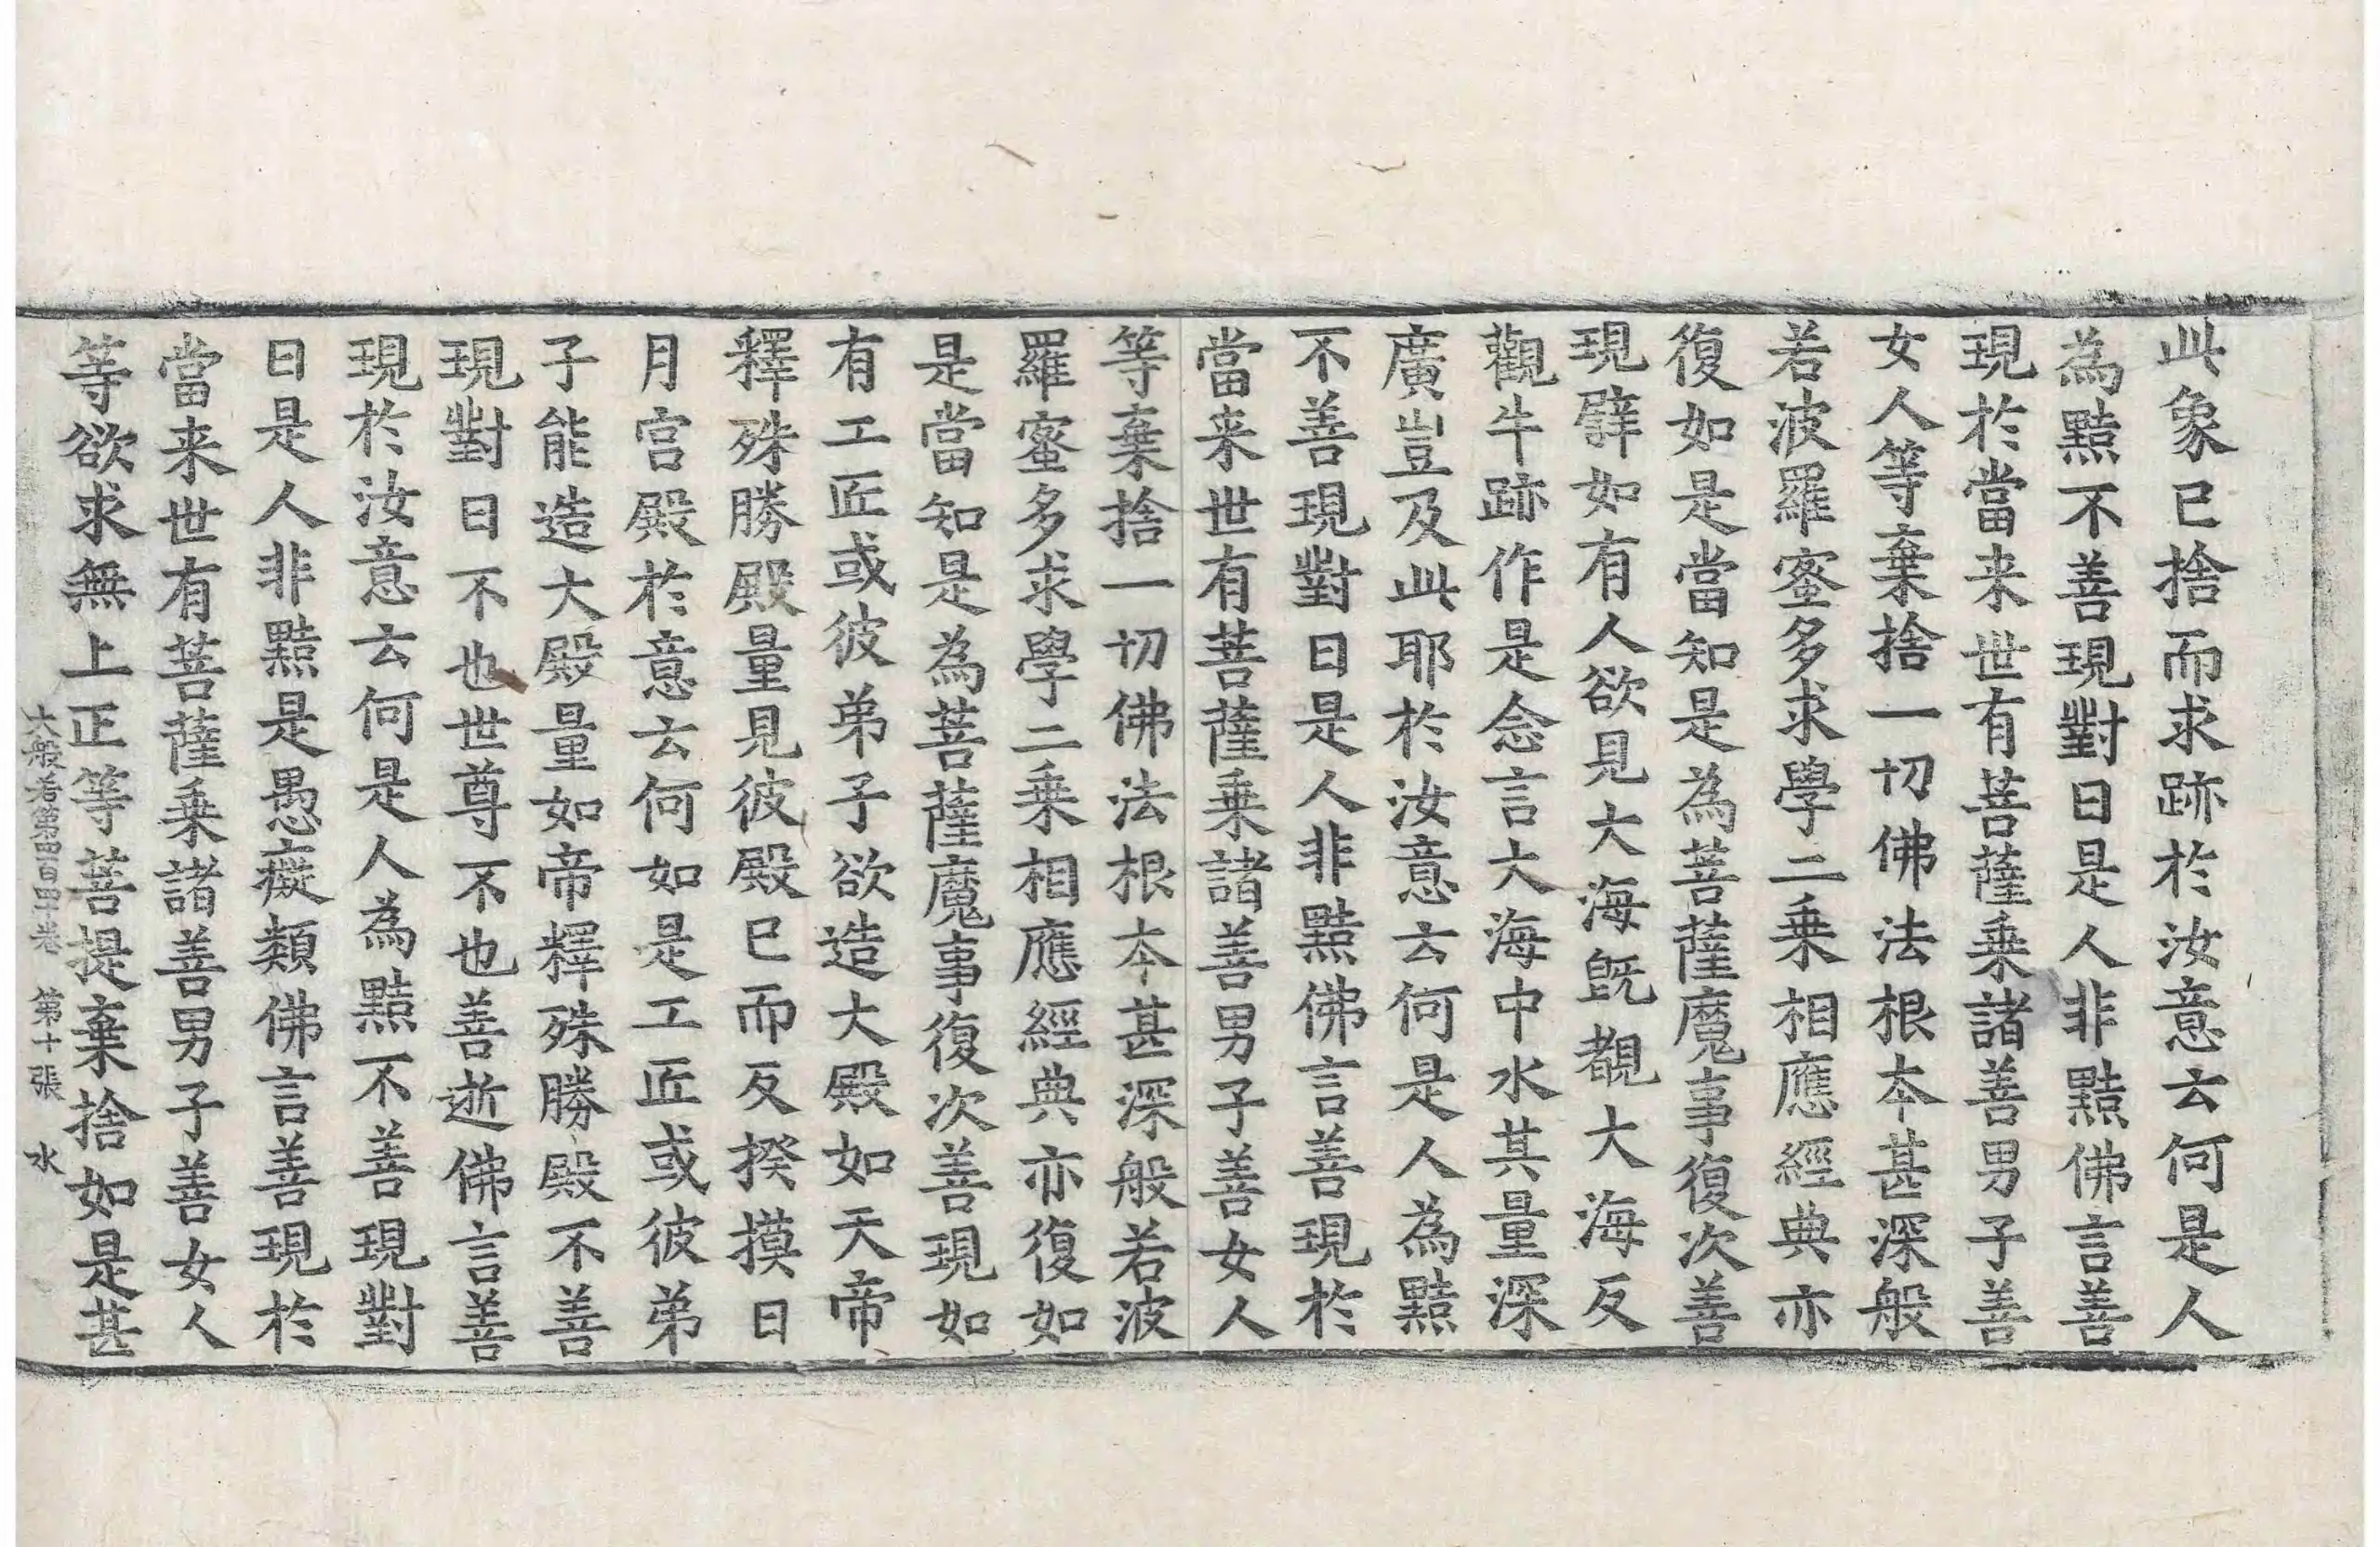 此象已捨而求跡於汝意云何是人
為黠不善現對曰是人非黠佛言善
現於當来世有菩薩乗諸善男子善
女人等棄捨一切佛法根本甚深般
若波羅蜜多求學二乗相應經典亦
復如是當知是為菩薩魔事復次善
現譬如有人欲見大海既覩大海反
觀牛跡作是念言大海中水其量深
廣豈及此耶於汝意云何是人為黠
不善現對曰是人非黠佛言善現於
當来世有菩薩乗諸善男子善女人
等棄捨一切佛法根本甚深般若波
羅蜜多求學二乗相應經典亦復如
是當知是為菩薩魔事復次善現如
有工匠或彼弟子欲造大殿如天帝
釋殊勝殿量見彼殿已而反揆摸日
月宫殿於意云何如是工匠或彼弟
子能造大殿量如帝釋殊勝殿不善
現對曰不也世尊不也善逝佛言善
現於汝意云何是人為黠不善現對
曰是人非黠是愚癡類佛言善現於
當来世有菩薩乗諸善男子善女人
等欲求無上正等菩提棄捨如是甚
大般若第四百四十卷 第十張 水